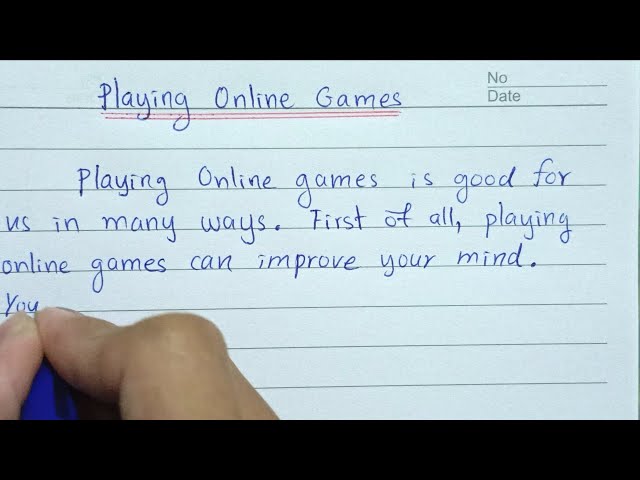 No
Date
Playing Online Games
Playing Online games is good for
us in many ways. First of all, playing
online games can improve your mind.
You